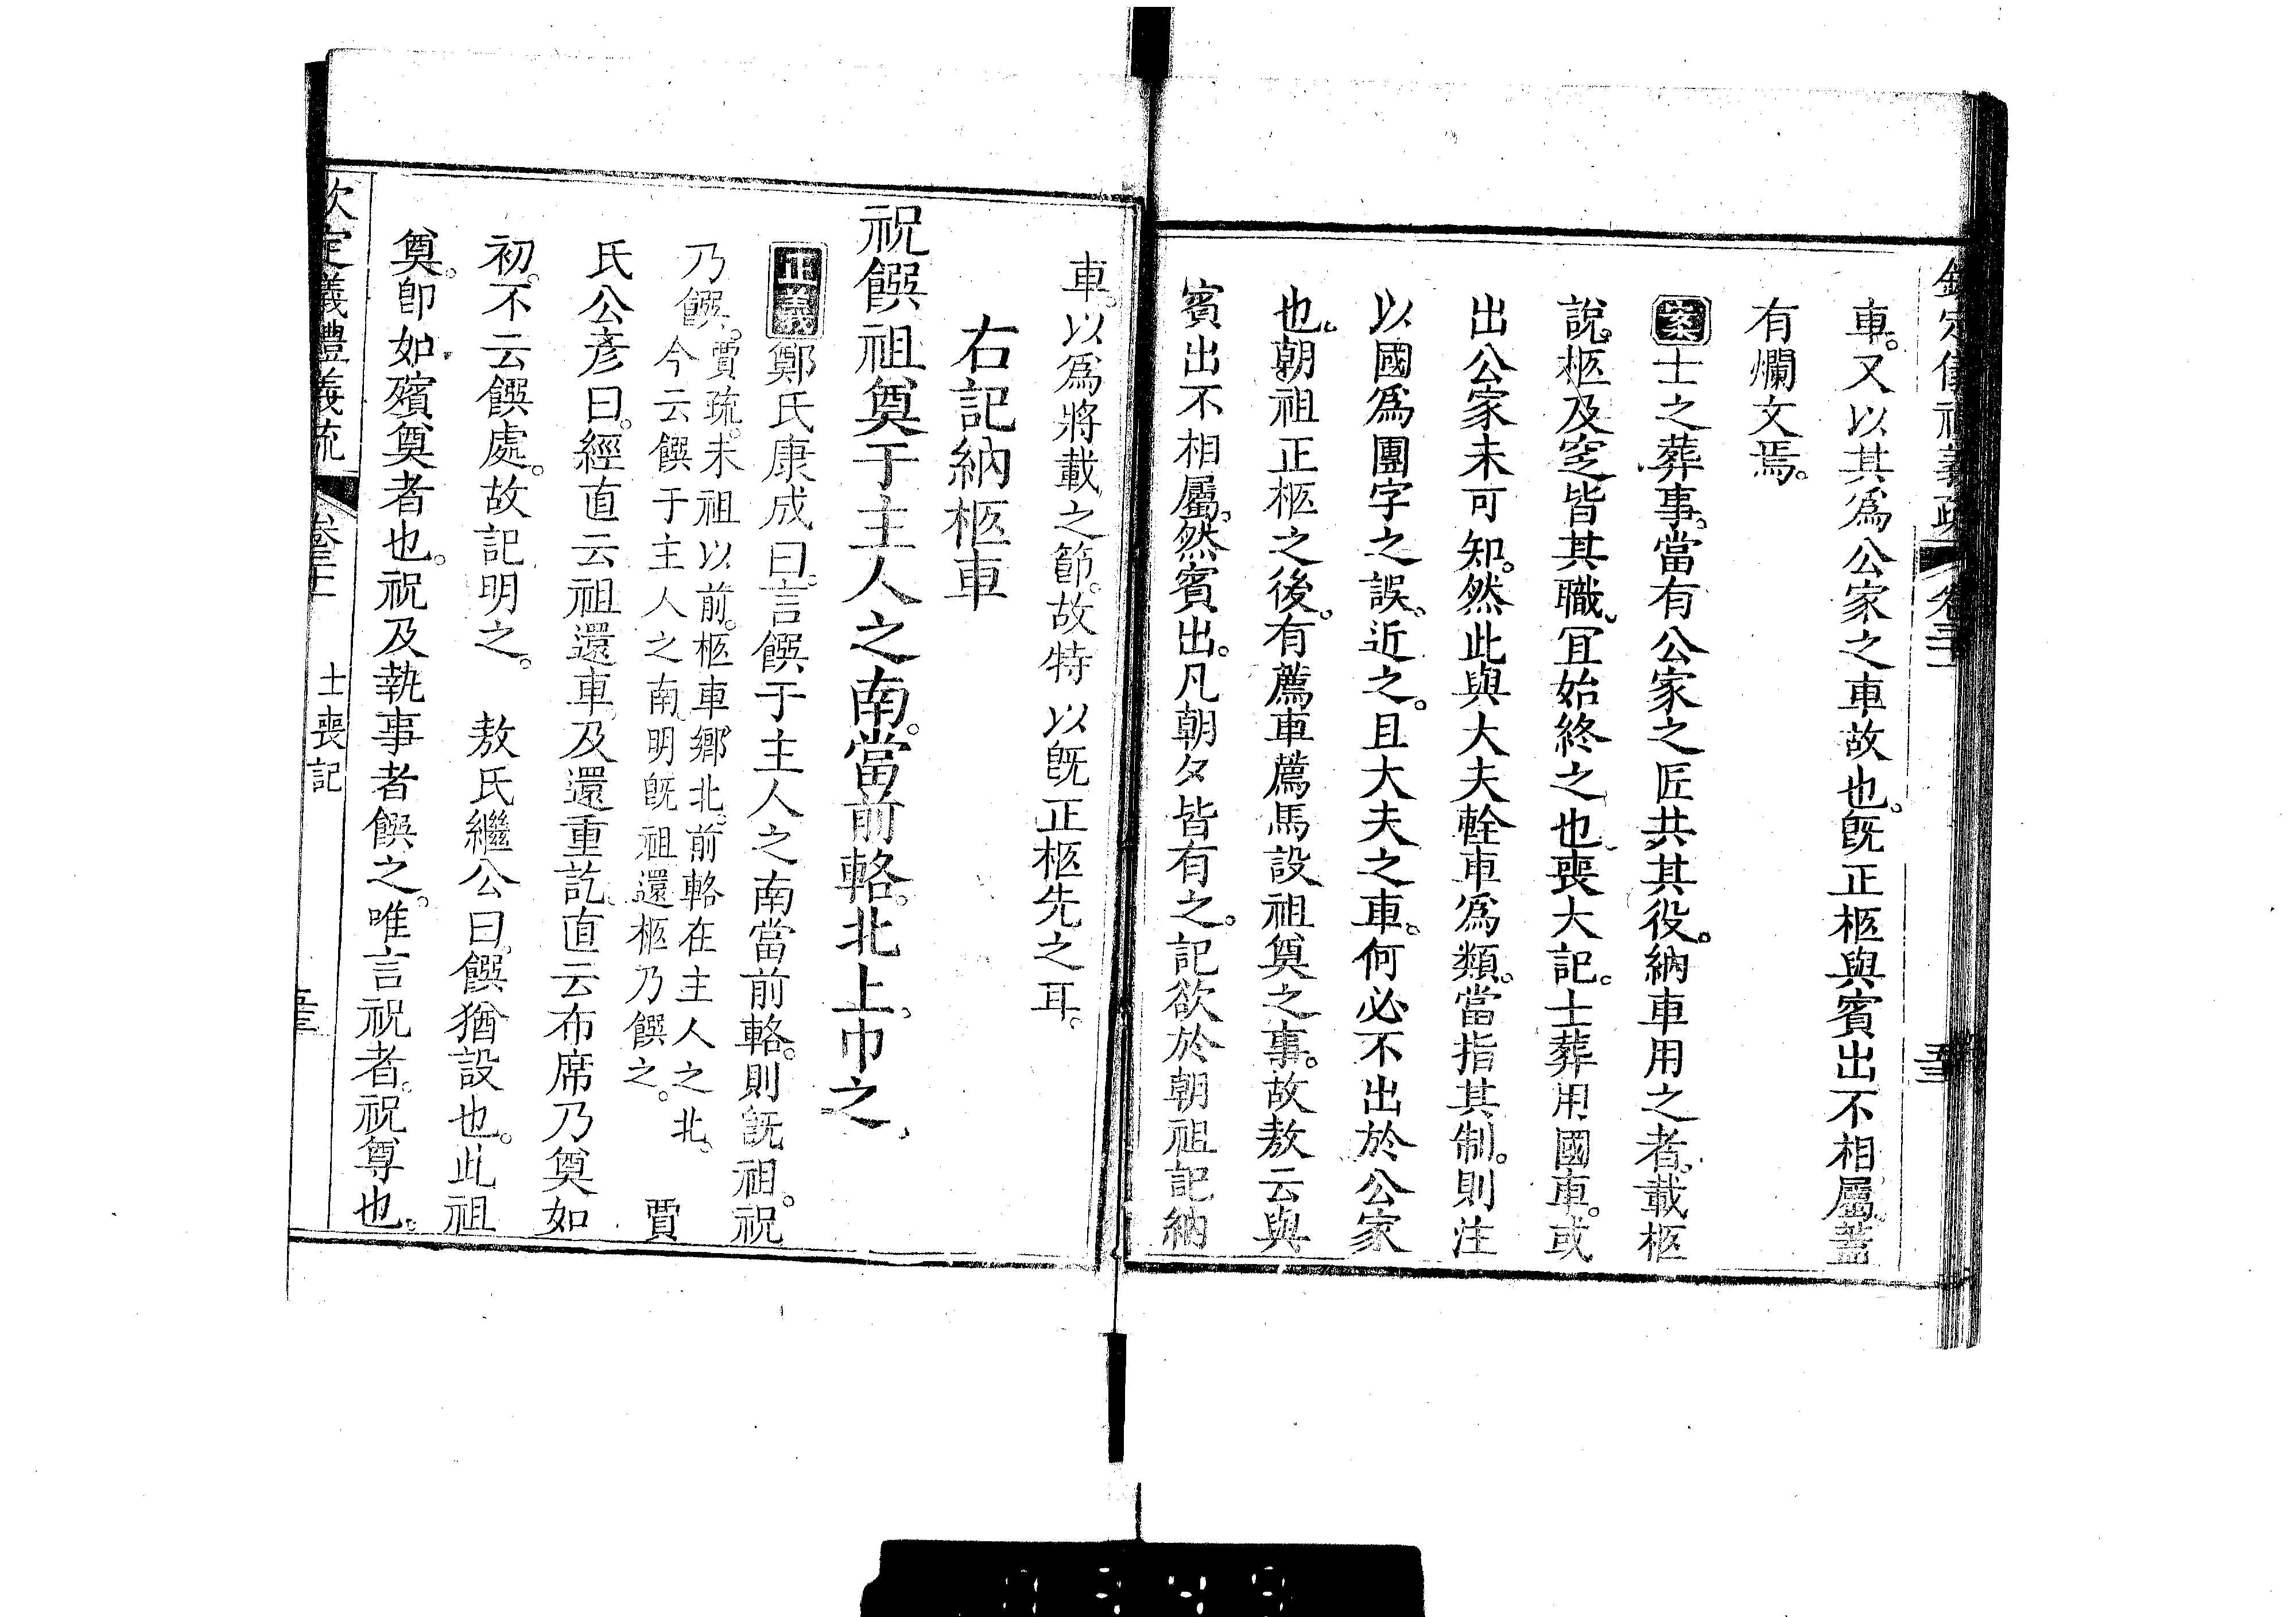 欽定儀禮義疏 卷三十一 五三
車。又以其爲公家之車故也。既正柩與賓出不相屬。蓋
有爛文焉。
案士之葬事。當有公家之匠共其役。納車用之者。載柩
說。柩及窆皆其職。宜始終之也。喪大記。士葬用國車。或
出公家未可知。然此與大夫輇車爲類。當指其制。則注
以國爲團字之誤。近之。且大夫之車。何必不出於公家
也。朝祖正柩之後。有薦車薦馬設祖奠之事。故敖云與
賓出不相屬。然賓出。凡朝夕皆有之。記欲於朝祖記納
車。以爲將載之節。故特以既正柩先之耳。
右記納柩車
祝饌祖奠于主人之南。當前輅。北上。巾之。
正義鄭氏康成曰。言饌于主人之南當前輅。則既祖。祝
乃饌。賈疏。未祖以前。柩車鄉北。前輅在主人之北。
今云饌于主人之南。明既祖還柩乃饌之。 賈
氏公彥曰。經直云祖還車。及還重訖。直云布席乃奠如
初。不云饌處。故記明之。 敖氏繼公曰。饌猶設也。此祖
奠。卽如殯奠者也。祝及執事者饌之。唯言祝者。祝尊也。
欽定儀禮義疏 卷三十一 士喪記 五三